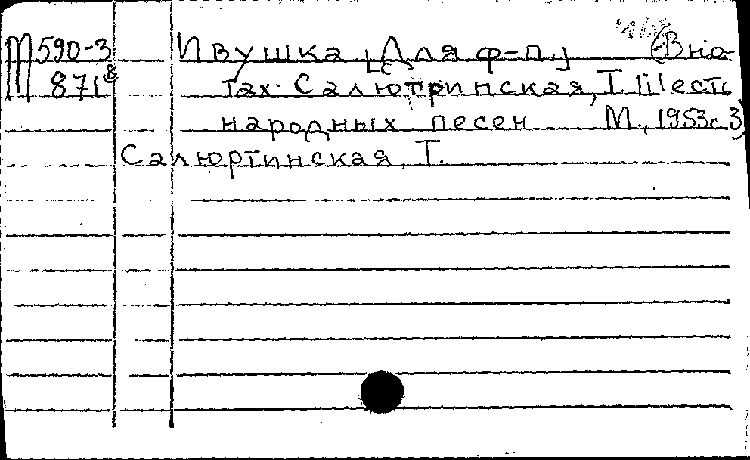 М 590-3 Ивушка [Для ф-п.] (В но-
871 тах: Салютринская, Т. Шесть
народных песен М., 1953 с. 3)
Салюртинская, Т.